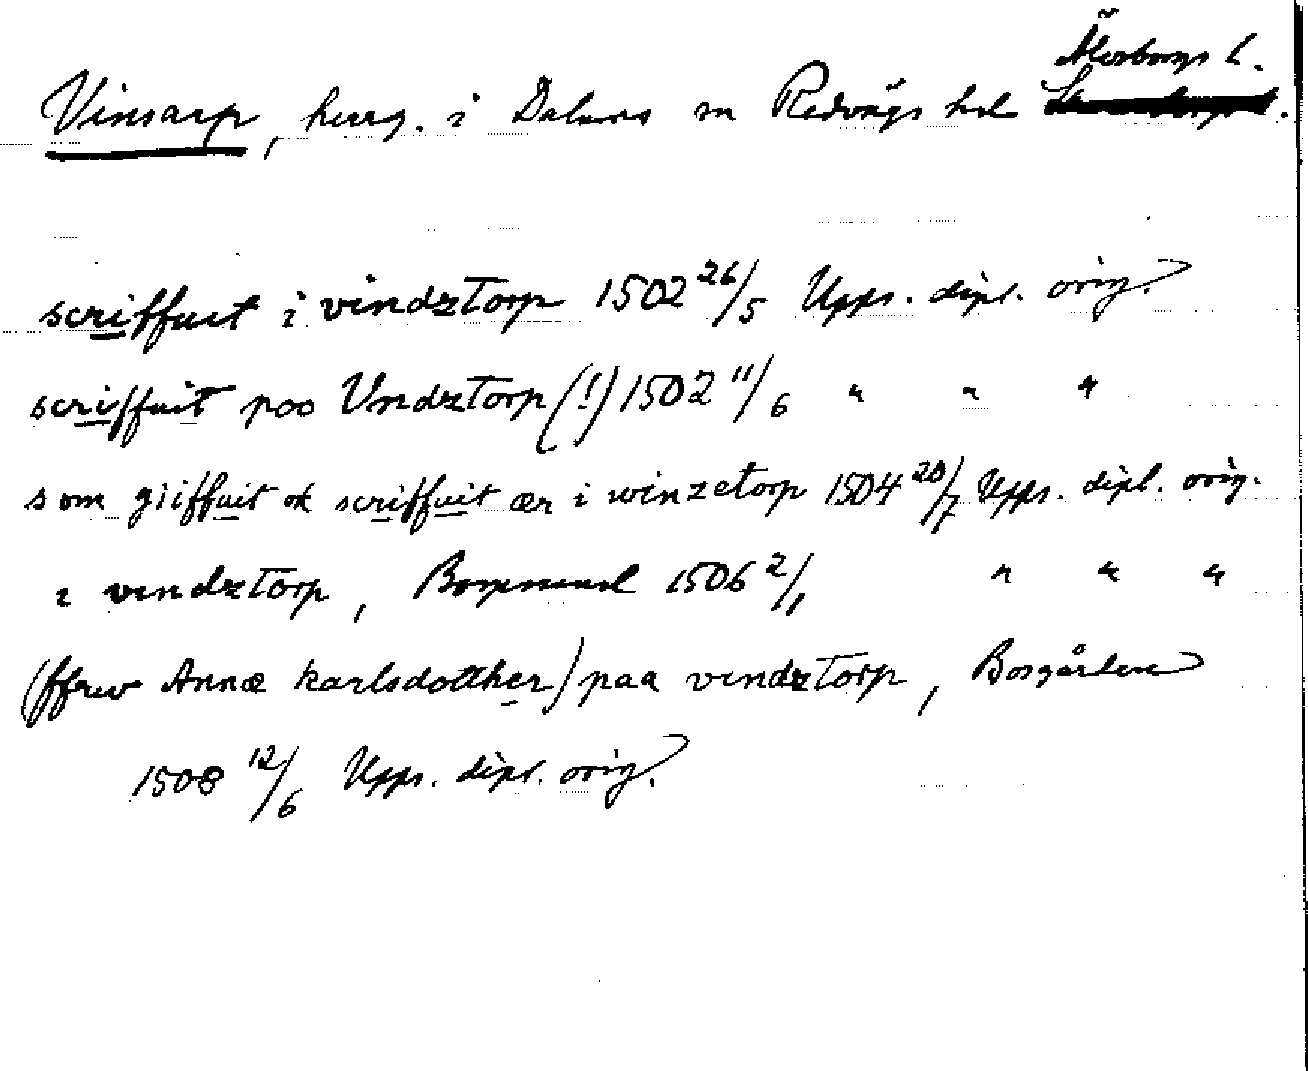 Älvsborgs l.
Vinsarp, herrg. i Dalums sn Redvägs hd
scriffuit i vindztorp 1502 26/5 Upps. dipl. orig.
scriffuit poo Vndztorp (!) 1502 11/6 " " "
som giiffuit ok scriffuit ær i winzetorp 1504 20/7 Upps. dipl. orig.
i vindztorp, 1506 2/1 " " "
(ffrw Annæ karlsdotther) paa vindztorp, Borgården
1508 12/6 Upps. dipl. orig.